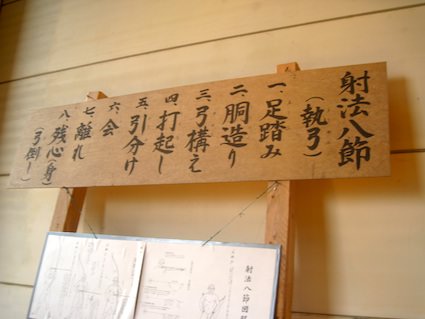 射法八節
(執弓)
一、足踏み
二、胴造り
三、弓構え
四、打起し
五、引分け
六、会
七、離れ
八、残心(身)
(弓倒し)
射法八節図